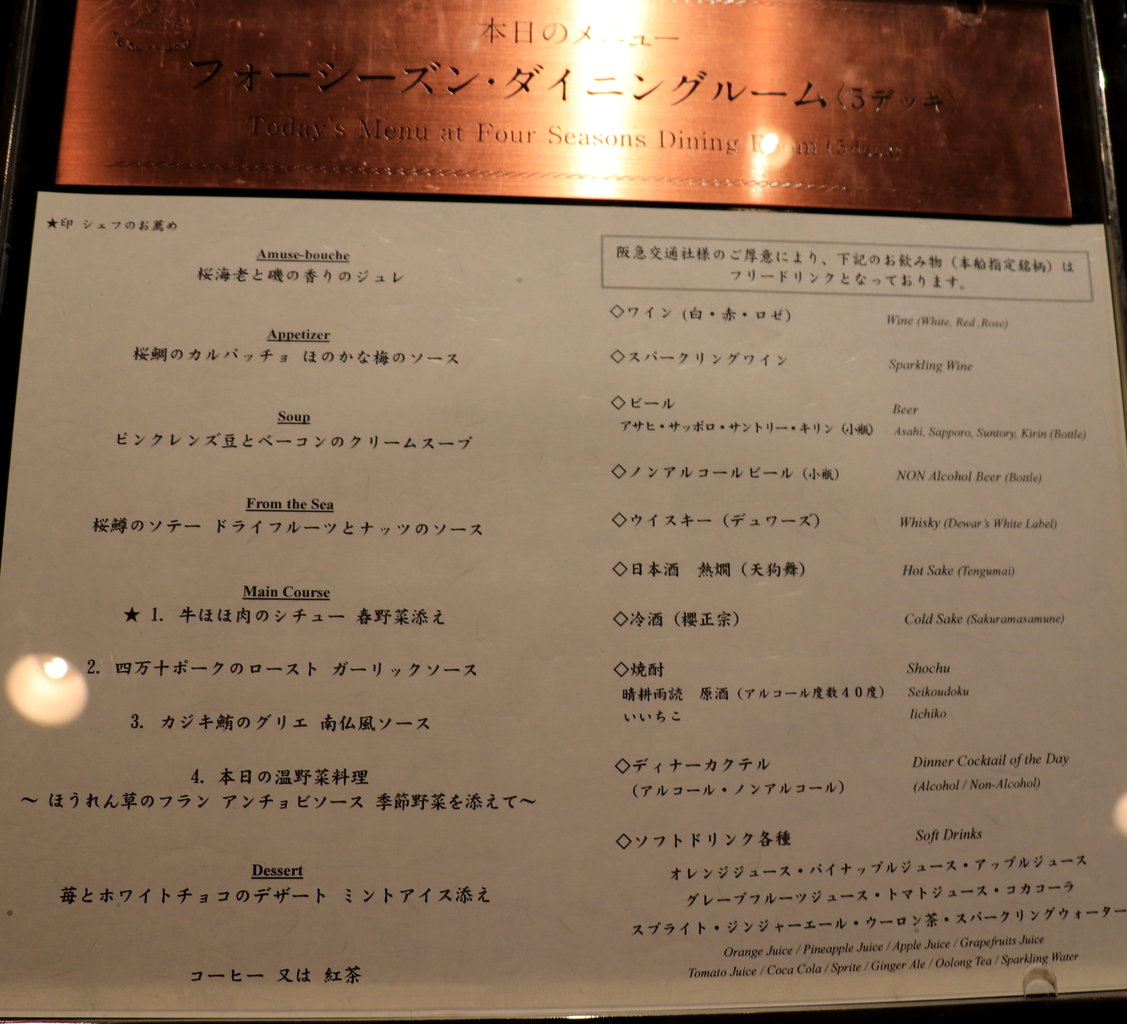 本日のメニュー
フォーシーズン・ダイニングルーム〈5デッキ〉
Today's Menu at Four Seasons Dining Room (5deck)
★印 シェフのお薦め
Amuse-bouche
桜海老と磯の香りのジュレ
Appetizer
桜鯛のカルパッチョ ほのかな梅のソース
Soup
ピンクレンズ豆とベーコンのクリームスープ
From the Sea
桜鱒のソテー ドライフルーツとナッツのソース
Main Course
★ 1. 牛ほほ肉のシチュー 春野菜添え
2. 四万十ポークのロースト ガーリックソース
3. カジキ鮪のグリエ 南仏風ソース
4. 本日の温野菜料理
～ ほうれん草のフラン アンチョビソース 季節野菜を添えて～
Dessert
苺とホワイトチョコのデザート ミントアイス添え
コーヒー 又は 紅茶
阪急交通社様のご厚意により、下記のお飲み物（本船指定銘柄）は
フリードリンクとなっております。
◇ワイン (白・赤・ロゼ) Wine (White, Red ,Rose)
◇スパークリングワイン Sparkling Wine
◇ビール Beer
アサヒ・サッポロ・サントリー・キリン（小瓶） Asahi, Sapporo, Suntory, Kirin (Bottle)
◇ノンアルコールビール（小瓶） NON Alcohol Beer (Bottle)
◇ウイスキー（デュワーズ） Whisky (Dewar's White Label)
◇日本酒　熱燗（天狗舞） Hot Sake (Tengumai)
◇冷酒（櫻正宗） Cold Sake (Sakuramasamune)
◇焼酎 Shochu
晴耕雨読　原酒（アルコール度数４０度） Seikoudoku
いいちこ Iichiko
◇ディナーカクテル Dinner Cocktail of the Day
（アルコール・ノンアルコール） (Alcohol / Non-Alcohol)
◇ソフトドリンク各種 Soft Drinks
オレンジジュース・パイナップルジュース・アップルジュース
グレープフルーツジュース・トマトジュース・コカコーラ
スプライト・ジンジャーエール・ウーロン茶・スパークリングウォーター
Orange Juice / Pineapple Juice / Apple Juice / Grapefruits Juice
Tomato Juice / Coca Cola / Sprite / Ginger Ale / Oolong Tea / Sparkling Water